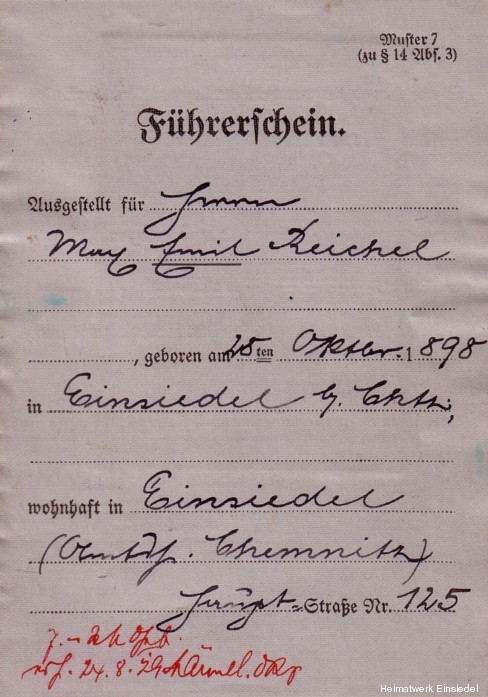 Muster 7
(zu § 14 Abs. 3)
Führerschein.
Ausgestellt für Herrn
Max Emil Reichel
, geboren am 25 ten Oktbr. 1898
in Einsiedel b. Chtz.,
wohnhaft in Einsiedel
(Amtsh. Chemnitz)
Haupt-Straße Nr. 125
7.-
24.8.29
Heimatwerk Einsiedel